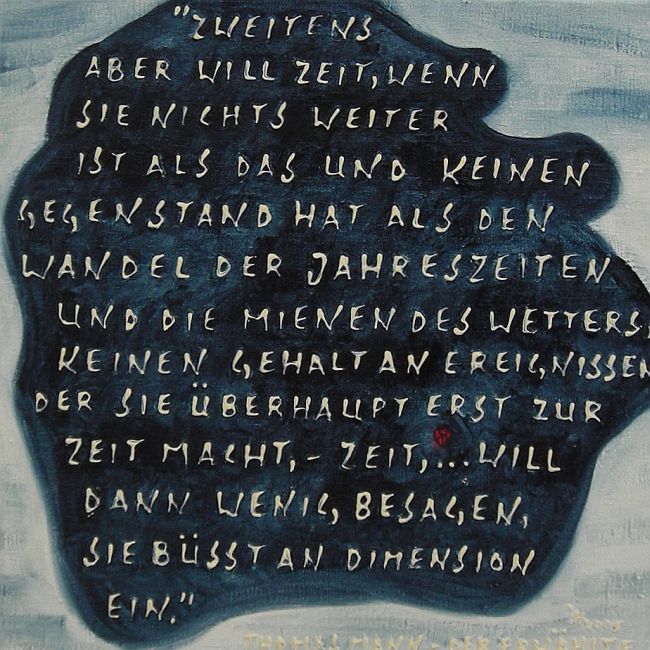 "ZWEITENS
ABER WILL ZEIT, WENN
SIE NICHTS WEITER
IST ALS DAS UND KEINEN
GEGENSTAND HAT ALS DEN
WANDEL DER JAHRESZEITEN
UND DIE MIENEN DES WETTERS,
KEINEN GEHALT AN EREIGNISSEN
DER SIE ÜBERHAUPT ERST ZUR
ZEIT MACHT,- ZEIT,...WILL
DANN WENIG BESAGEN,
SIE BÜSST AN DIMENSION
EIN."
THOMAS MANN - DER ERWÄHLTE